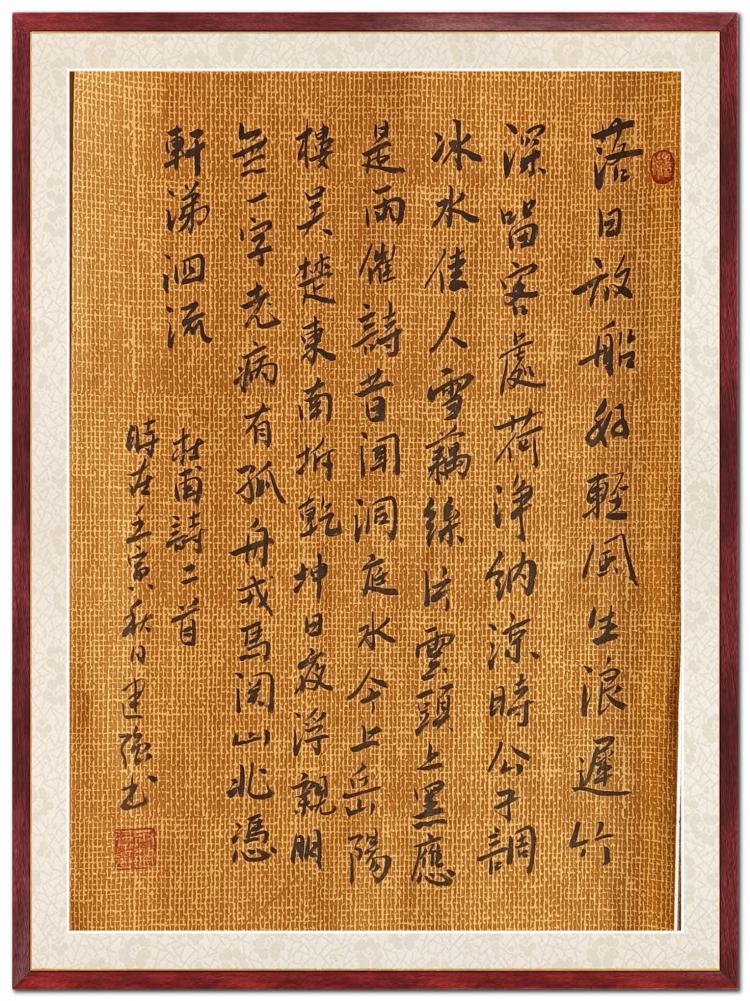 落日放船好輕風生浪遲竹
深留客處荷淨納涼時公子調
冰水佳人雪藕絲片雲頭上黑應
是雨催詩昔聞洞庭水今上岳陽
樓吳楚東南坼乾坤日夜浮親朋
無一字老病有孤舟戎馬関山北憑
軒涕泗流
杜甫詩二首
時在壬寅秋日建强书